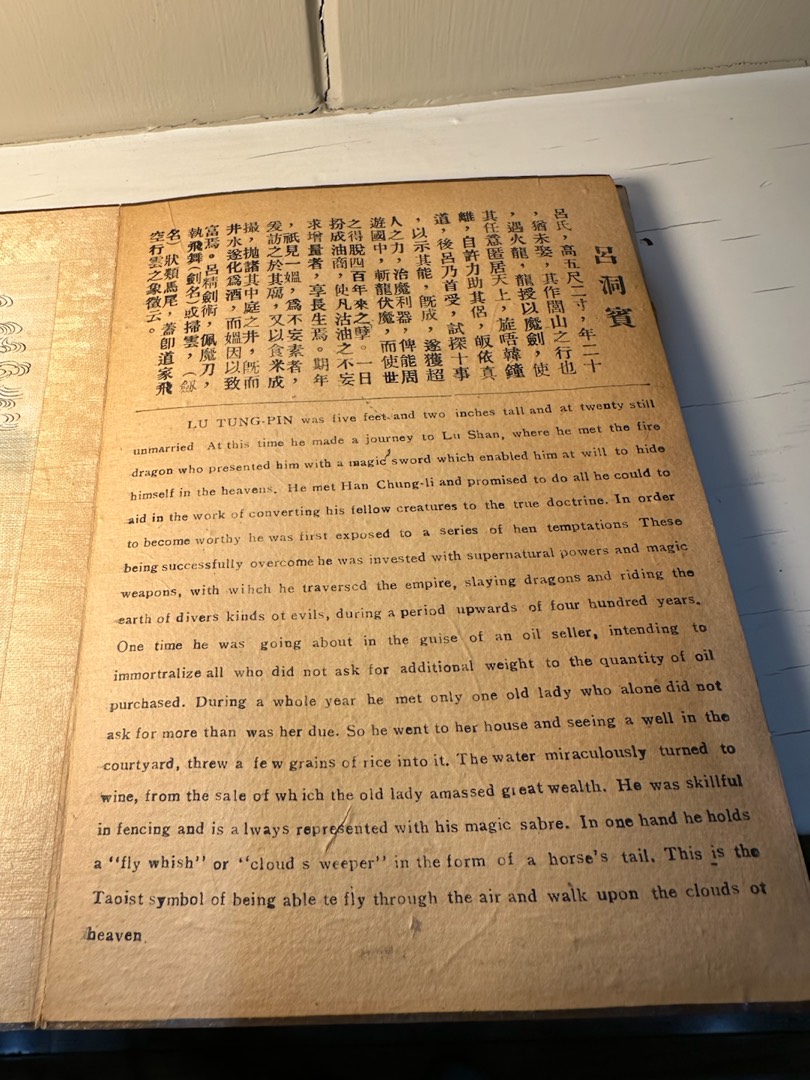 呂洞賓
呂氏，高五尺二寸，年二十
，猶未娶，其作閭山之行也
，遇火龍，龍授以魔劍，使
其任意匿居天上，旋唔韓鐘
離，自許力助其侶，皈依真
道，後呂乃首受，試探十事
，以示其能，既成，遂獲超
人之力，治魔利器，俾能周
遊國中，斬龍伏魔，而使世
之得脫四百年來之孽。一日
扮成油商，使凡沽油之不妄
求增量者，享長生焉。期年
，祇見一媼，為不妄素者，
爰訪之於其寓，又以食米成
撮，拋諸其中庭之井，既而
井水遂化為酒，而媼因以致
富焉。呂精劍術，佩魔刀，
執飛舞（劍名）或掃雲，（
名）狀類馬尾，蓄卽道家飛
空行雲之象徵云。
LU TUNG-PIN was five feet and two inches tall and at twenty still
unmarried At this time he made a journey to Lu Shan, where he met the fire
dragon who presented him with a magic sword which enabled him at will to hide
himself in the heavens. He met Han Chung-li and promised to do all he could to
aid in the work of converting his fellow creatures to the true doctrine. In order
to become worthy he was first exposed to a series of hen temptations These
being successfully overcome he was invested with supernatural powers and magic
weapons, with wihch he traversed the empire, slaying dragons and riding the
earth of divers kinds ot evils, during a period upwards of four hundred years.
One time he was going about in the guise of an oil seller, intending to
immortralize all who did not ask for additional weight to the quantity of oil
purchased. During a whole year he met only one old lady who alone did not
ask for more than was her due. So he went to her house and seeing a well in the
courtyard, threw a few grains of rice into it. The water miraculously turned to
wine, from the sale of wh ich the old lady amassed great wealth. He was skillful
in fencing and is a lways represented with his magic sabre. In one hand he holds
a "fly whish" or "cloud s weeper" in the form of a horse's tail. This is the
Taoist symbol of being able te fly through the air and walk upon the clouds ot
heaven.